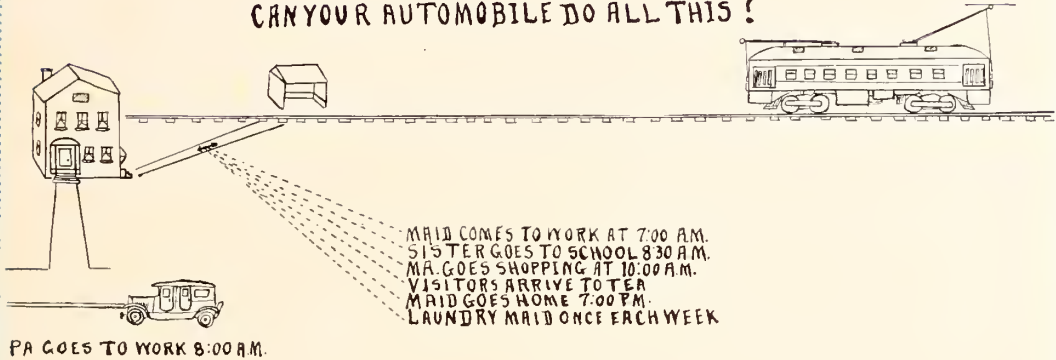 CAN YOUR AUTOMOBILE DO ALL THIS!
MAID COMES TO WORK AT 7:00 A.M.
SISTER GOES TO SCHOOL 8 30 A.M.
MA. GOES SHOPPING AT 10:00 A.M.
VISITORS ARRIVE TO TEA
MAID GOES HOME 7:00 P.M.
LAUNDRY MAID ONCE EACH WEEK
PA GOES TO WORK 8:00 A.M.